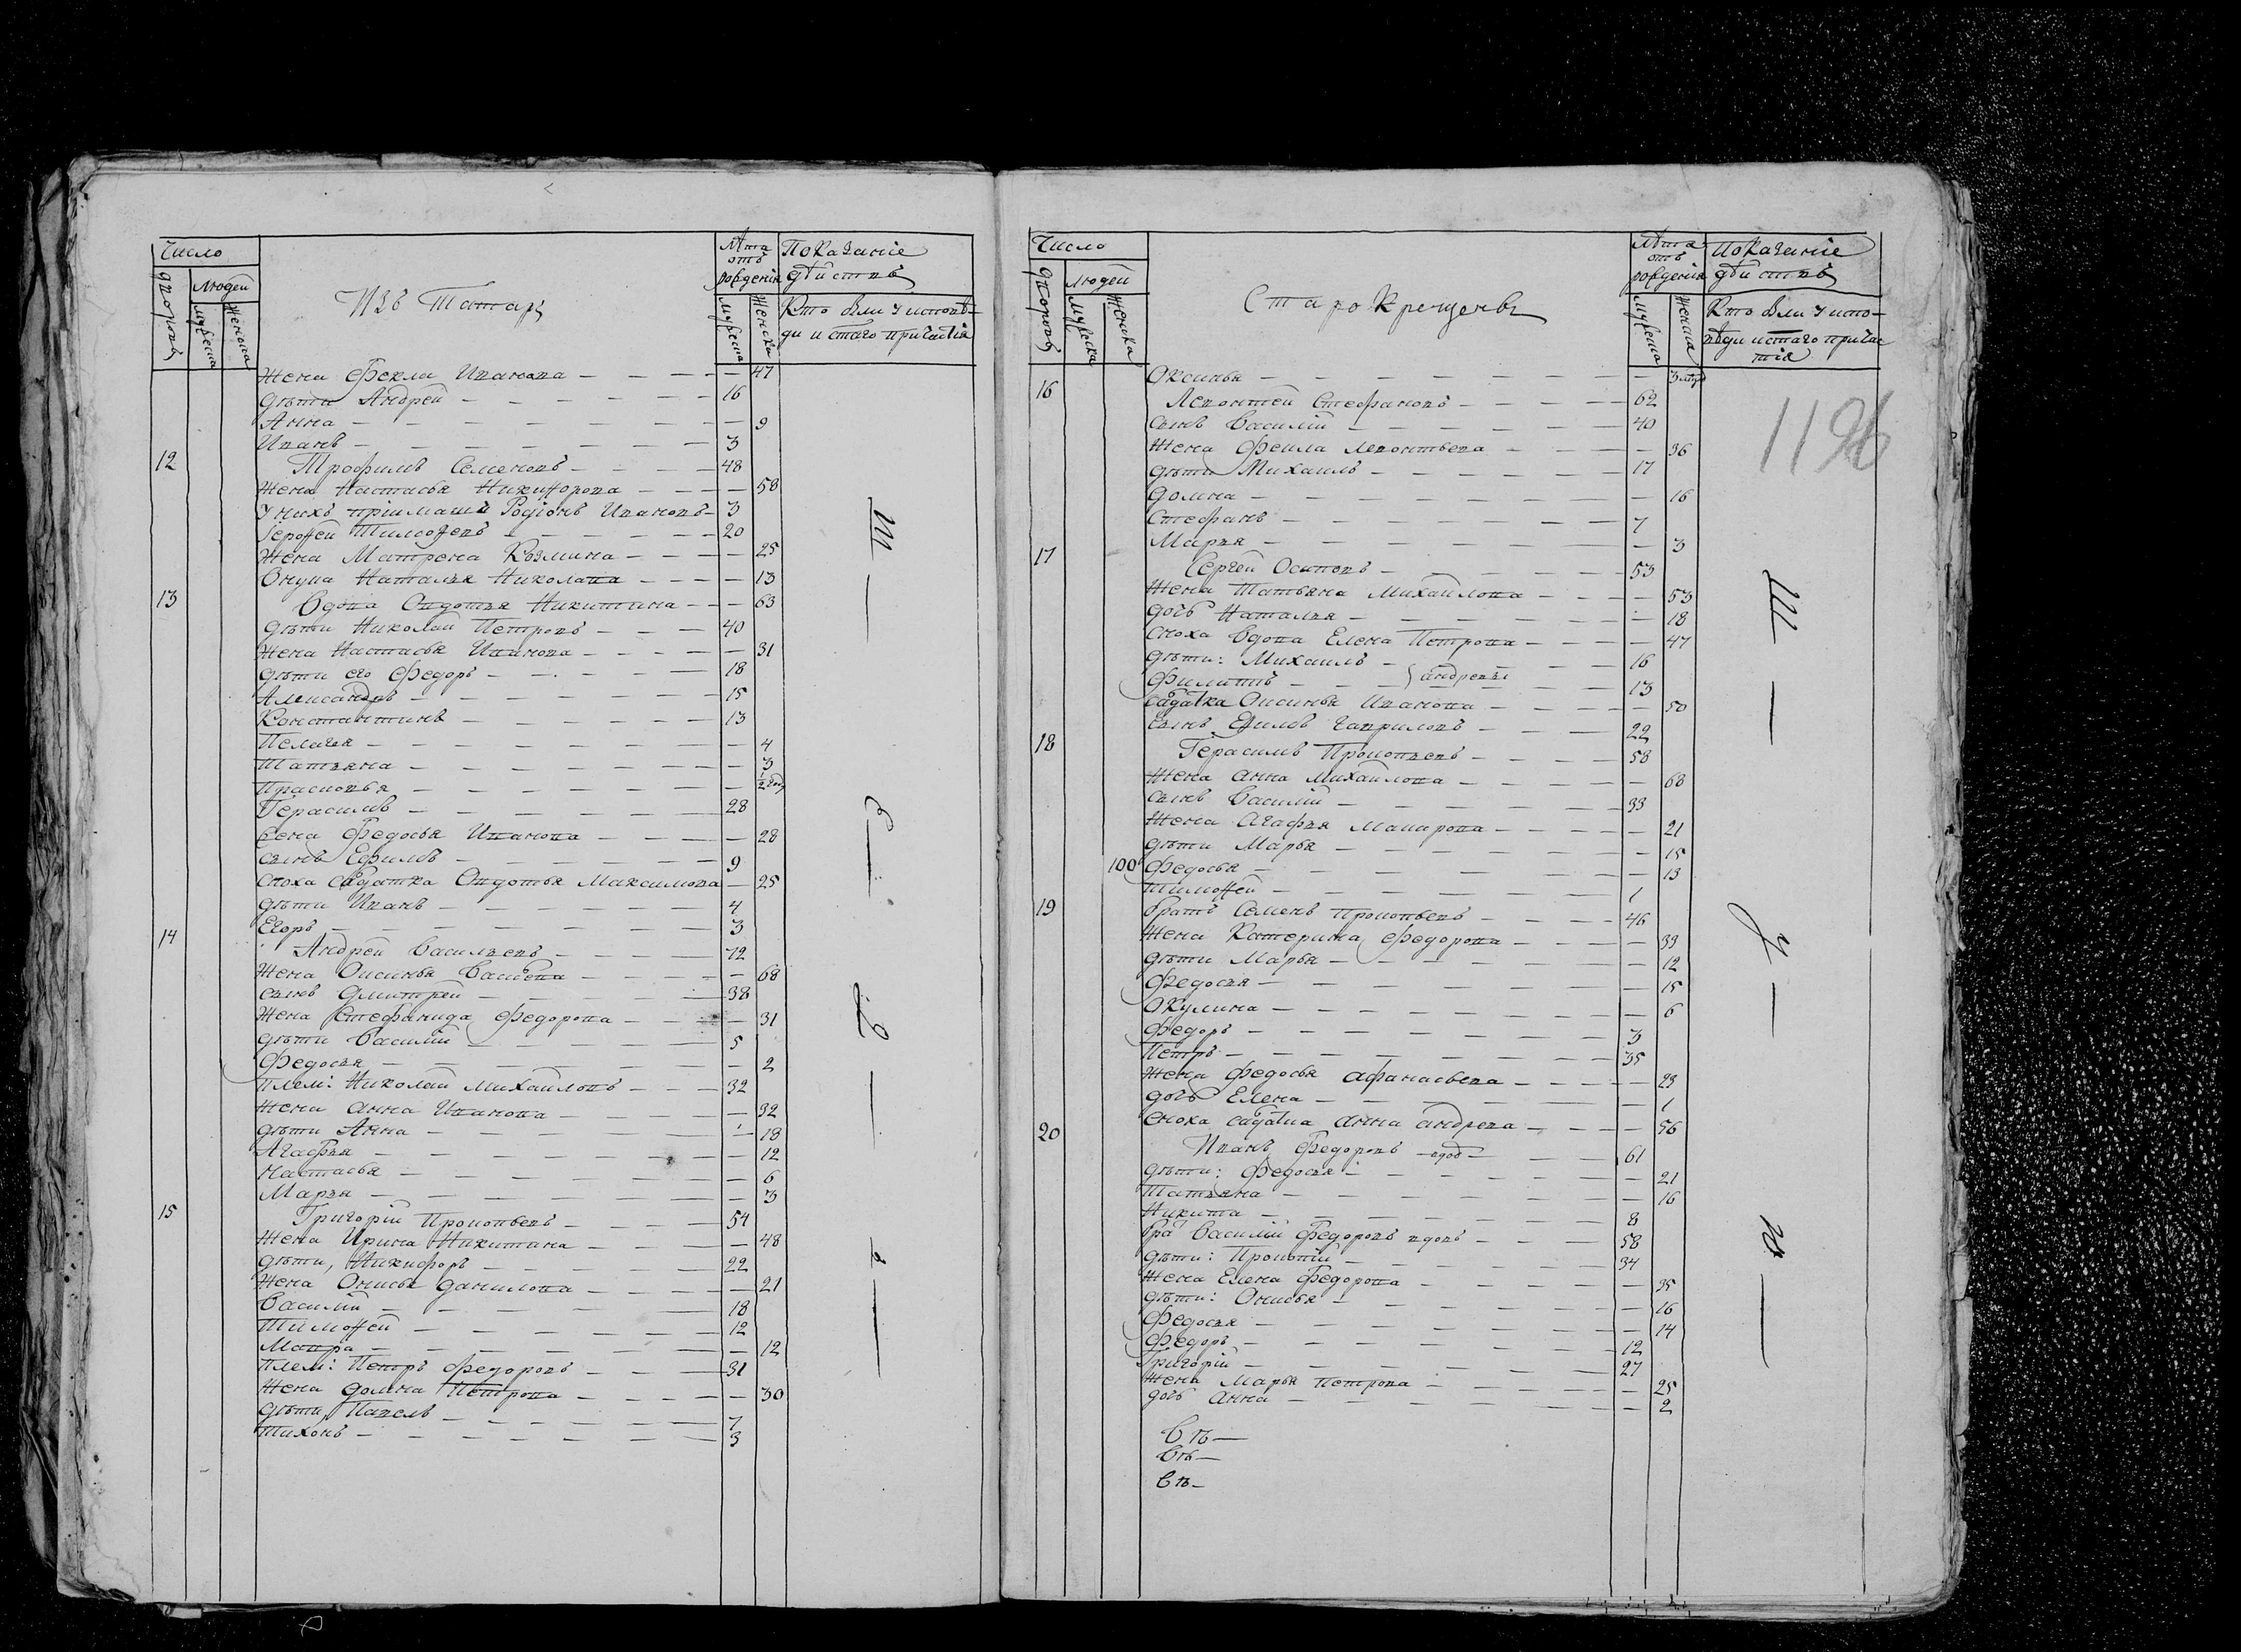 Число
дворовъ
людей
мужеска
женска
Изъ Татаръ
Лѣта отъ рождения
мужеска
женска
Показаніе действъ
Кто были у исповѣ-
ди и стаго причастія
Жена Фекла Иванова — 47
дѣти Андрей — 16
Анна — 9
Иванъ — 3
12 Трофимъ Семеновъ — 48
Жена Настасья Никиѳорова — 58
У нихъ пріимашъ Родіонъ Ивановъ — 3
Іероѳей Тимоѳеевъ — 20
Жена Матрена Козмина — 25
Внука Наталья Николаева — 13
13 Вдова Овдотья Никитина — 63
дѣти Николай Петровъ — 40
Жена Настасья Иванова — 31
дѣти его Федоръ — 18
Александръ — 15
Константинъ — 13
Пелагея — 4
Татьяна — 3
Прасковья — 1/2 год
Герасимъ — 28
Жена Федосья Иванова — 28
сынъ Ефимъ — 9
Сноха салдатка Овдотья Максимова — 25
дѣти Иванъ — 4
Егоръ — 3
14 Андрей Васильевъ — 72
Жена Оксинья Васильева — 68
сынъ Дмитрей — 38
Жена Стефанида Федорова — 31
дѣти Василій — 5
Федосья — 2
плем: Николай Михайловъ — 32
Жена Анна Иванова — 32
дѣти Анна — 18
Агафья — 12
Настасья — 6
Марья — 3
15 Григорій Прокопьевъ — 54
Жена Ирина Никитина — 48
дѣти, Никифоръ — 22
Жена Онисья Данилова — 21
Василій — 18
Тимоѳей — 12
Мавра — 12
плем: Петръ Федоровъ — 31
Жена Домна Петрова — 30
дѣти, Павелъ — 7
Тихонъ — 3
Число
дворовъ
людей
мужеска
женска
Старокрещенъ
Лѣта отъ рождения
мужеска
женска
Показаніе действъ
Кто были у испо-
вѣди и стаго причас
тія
1196
Оксинья — 3
16 Левонтей Стефановъ — 62
сынъ Василій — 40
Жена Фекла Левонтьева — 36
дѣти Михаилъ — 17
Домна — 16
Стефанъ — 7
Марья — 3
17 Сергей Осиповъ — 53
Жена Татьяна Михайлова — 53
дочь Наталья — 18
сноха вдова Елена Петрова — 47
дѣти: Михаилъ — 16
Филиппъ — андреевы — 13
салдатка Оксинья Иванова — 50
сынъ Ефимъ Гавриловъ — 22
18 Герасимъ Прокопьевъ — 58
Жена Анна Михайлова — 68
сынъ Василій — 33
Жена Агафья Макарова — 21
дѣти Марья — 15
100 Федосья — 13
Тимоѳей — 1
19 братъ Семенъ Прокопьевъ — 46
Жена Катерина Федорова — 39
дѣти Марья — 12
Федосья — 15
Окулина — 6
Федоръ — 3
Петръ — 35
Жена Федосья Афанасьева — 23
дочь Елена — 1
сноха салдатка Анна Андреева — 56
20 Иванъ Федоровъ вдов — 61
дѣти: Федосья — 21
Татьяна — 16
Никита — 8
Бра Василій Федоровъ вдовъ — 58
дѣти: Прокопій — 34
Жена Елена Федорова — 35
дѣти: Онисья — 16
Федосья — 14
Федоръ — 12
Григорій — 27
Жена Марья Петрова — 25
дочь Анна — 2